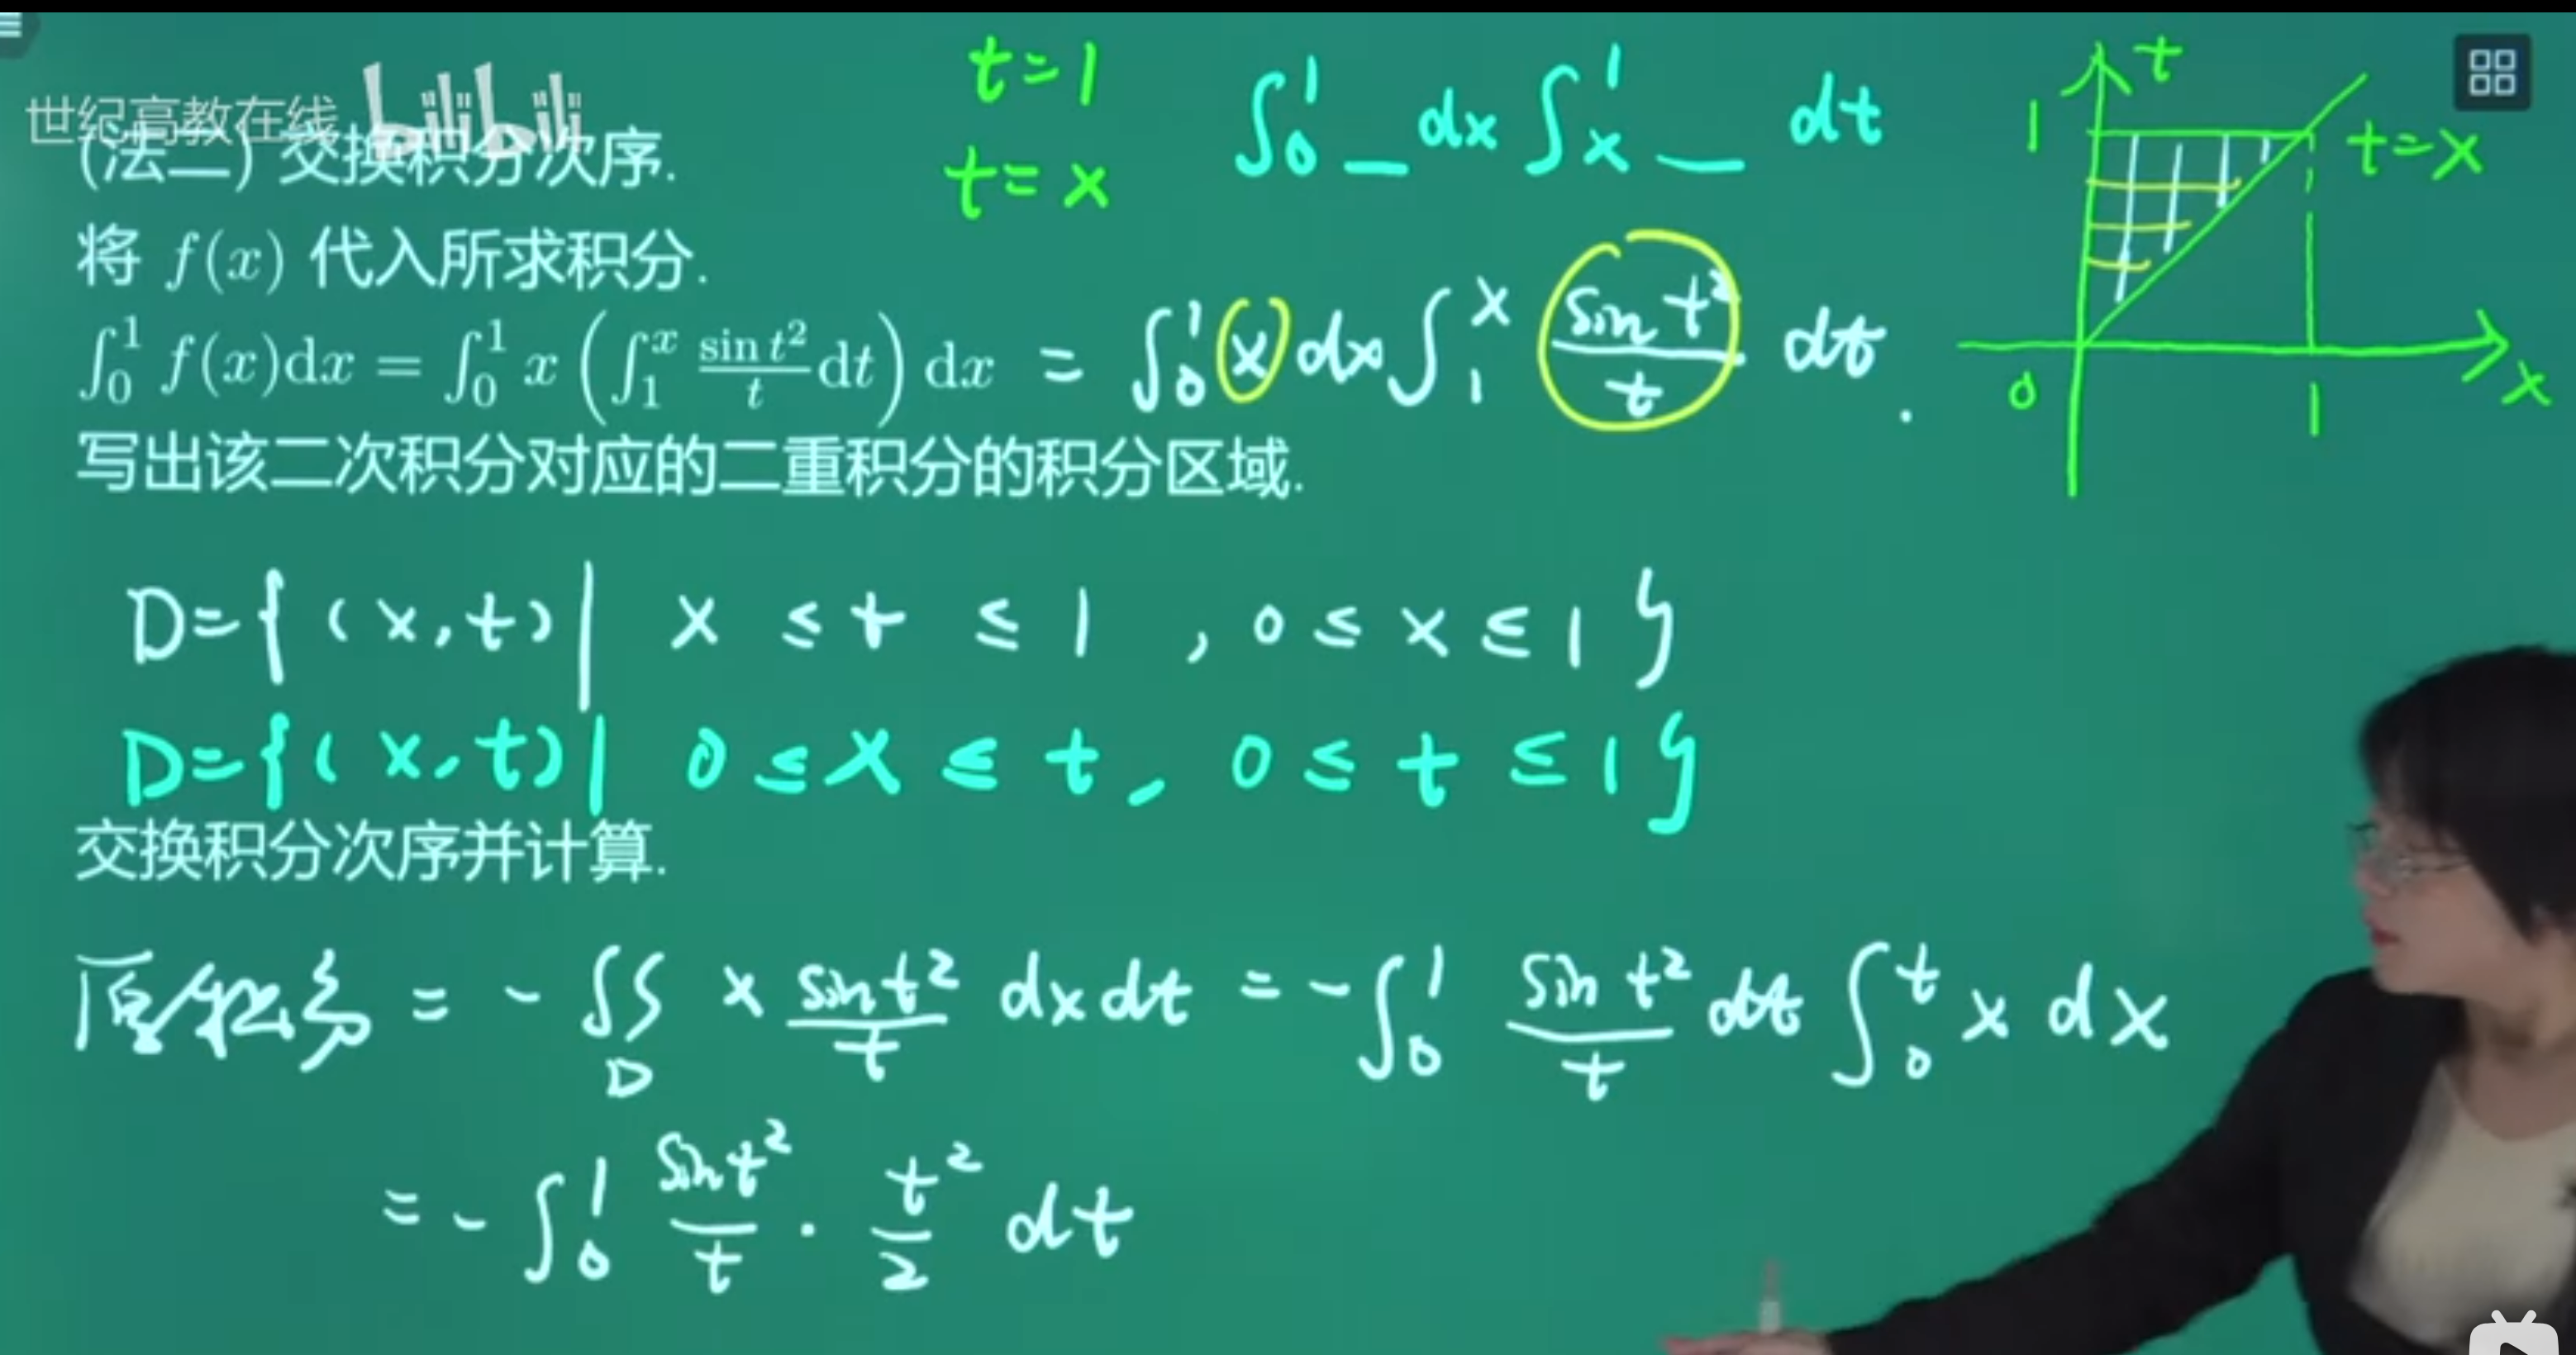 世纪高教在线 bilibili
(法二) 交换积分次序.
t=1
t=x
∫₀¹ _ dx ∫ₓ¹ _ dt
将 f(x) 代入所求积分.
∫₀¹ f(x)dx = ∫₀¹ x (∫₁ˣ sin t²/t dt) dx = ∫₀¹ x dx ∫₁ˣ sin t²/t dt.
t
1
t=x
0
1
x
写出该二次积分对应的二重积分的积分区域.
D={(x,t)| x ≤ t ≤ 1, 0 ≤ x ≤ 1}
D={(x,t)| 0 ≤ x ≤ t, 0 ≤ t ≤ 1}
交换积分次序并计算.
原积分 = -∬_D x sin t²/t dxdt = -∫₀¹ sin t²/t dt ∫₀ᵗ x dx
= -∫₀¹ sin t²/t · t²/2 dt